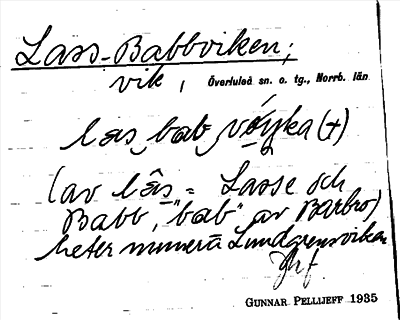 Lass-Babbviken;
vik, Överluleå sn. o. tg., Norrb. län
las bab vøyka (+)
(av lâs = Lasse och
Babb, "bab" av Barbro)
heter numera Lundgrensviken
GUNNAR PELLIJEFF 1935